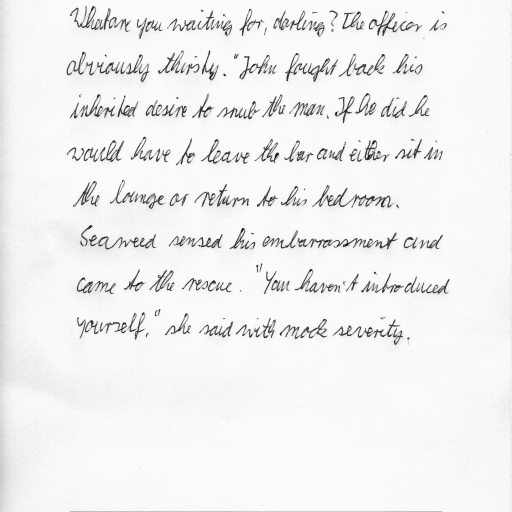 Whatare you waiting for, darling? The officer is
obviously thirsty." John fought back his
inherited desire to snub the man. If he did he
would have to leave the bar and either sit in
the lounge or return to his bedroom.
Seaweed sensed his embarrassment and
came to the rescue. "You haven't introduced
yourself," she said with mock severity.